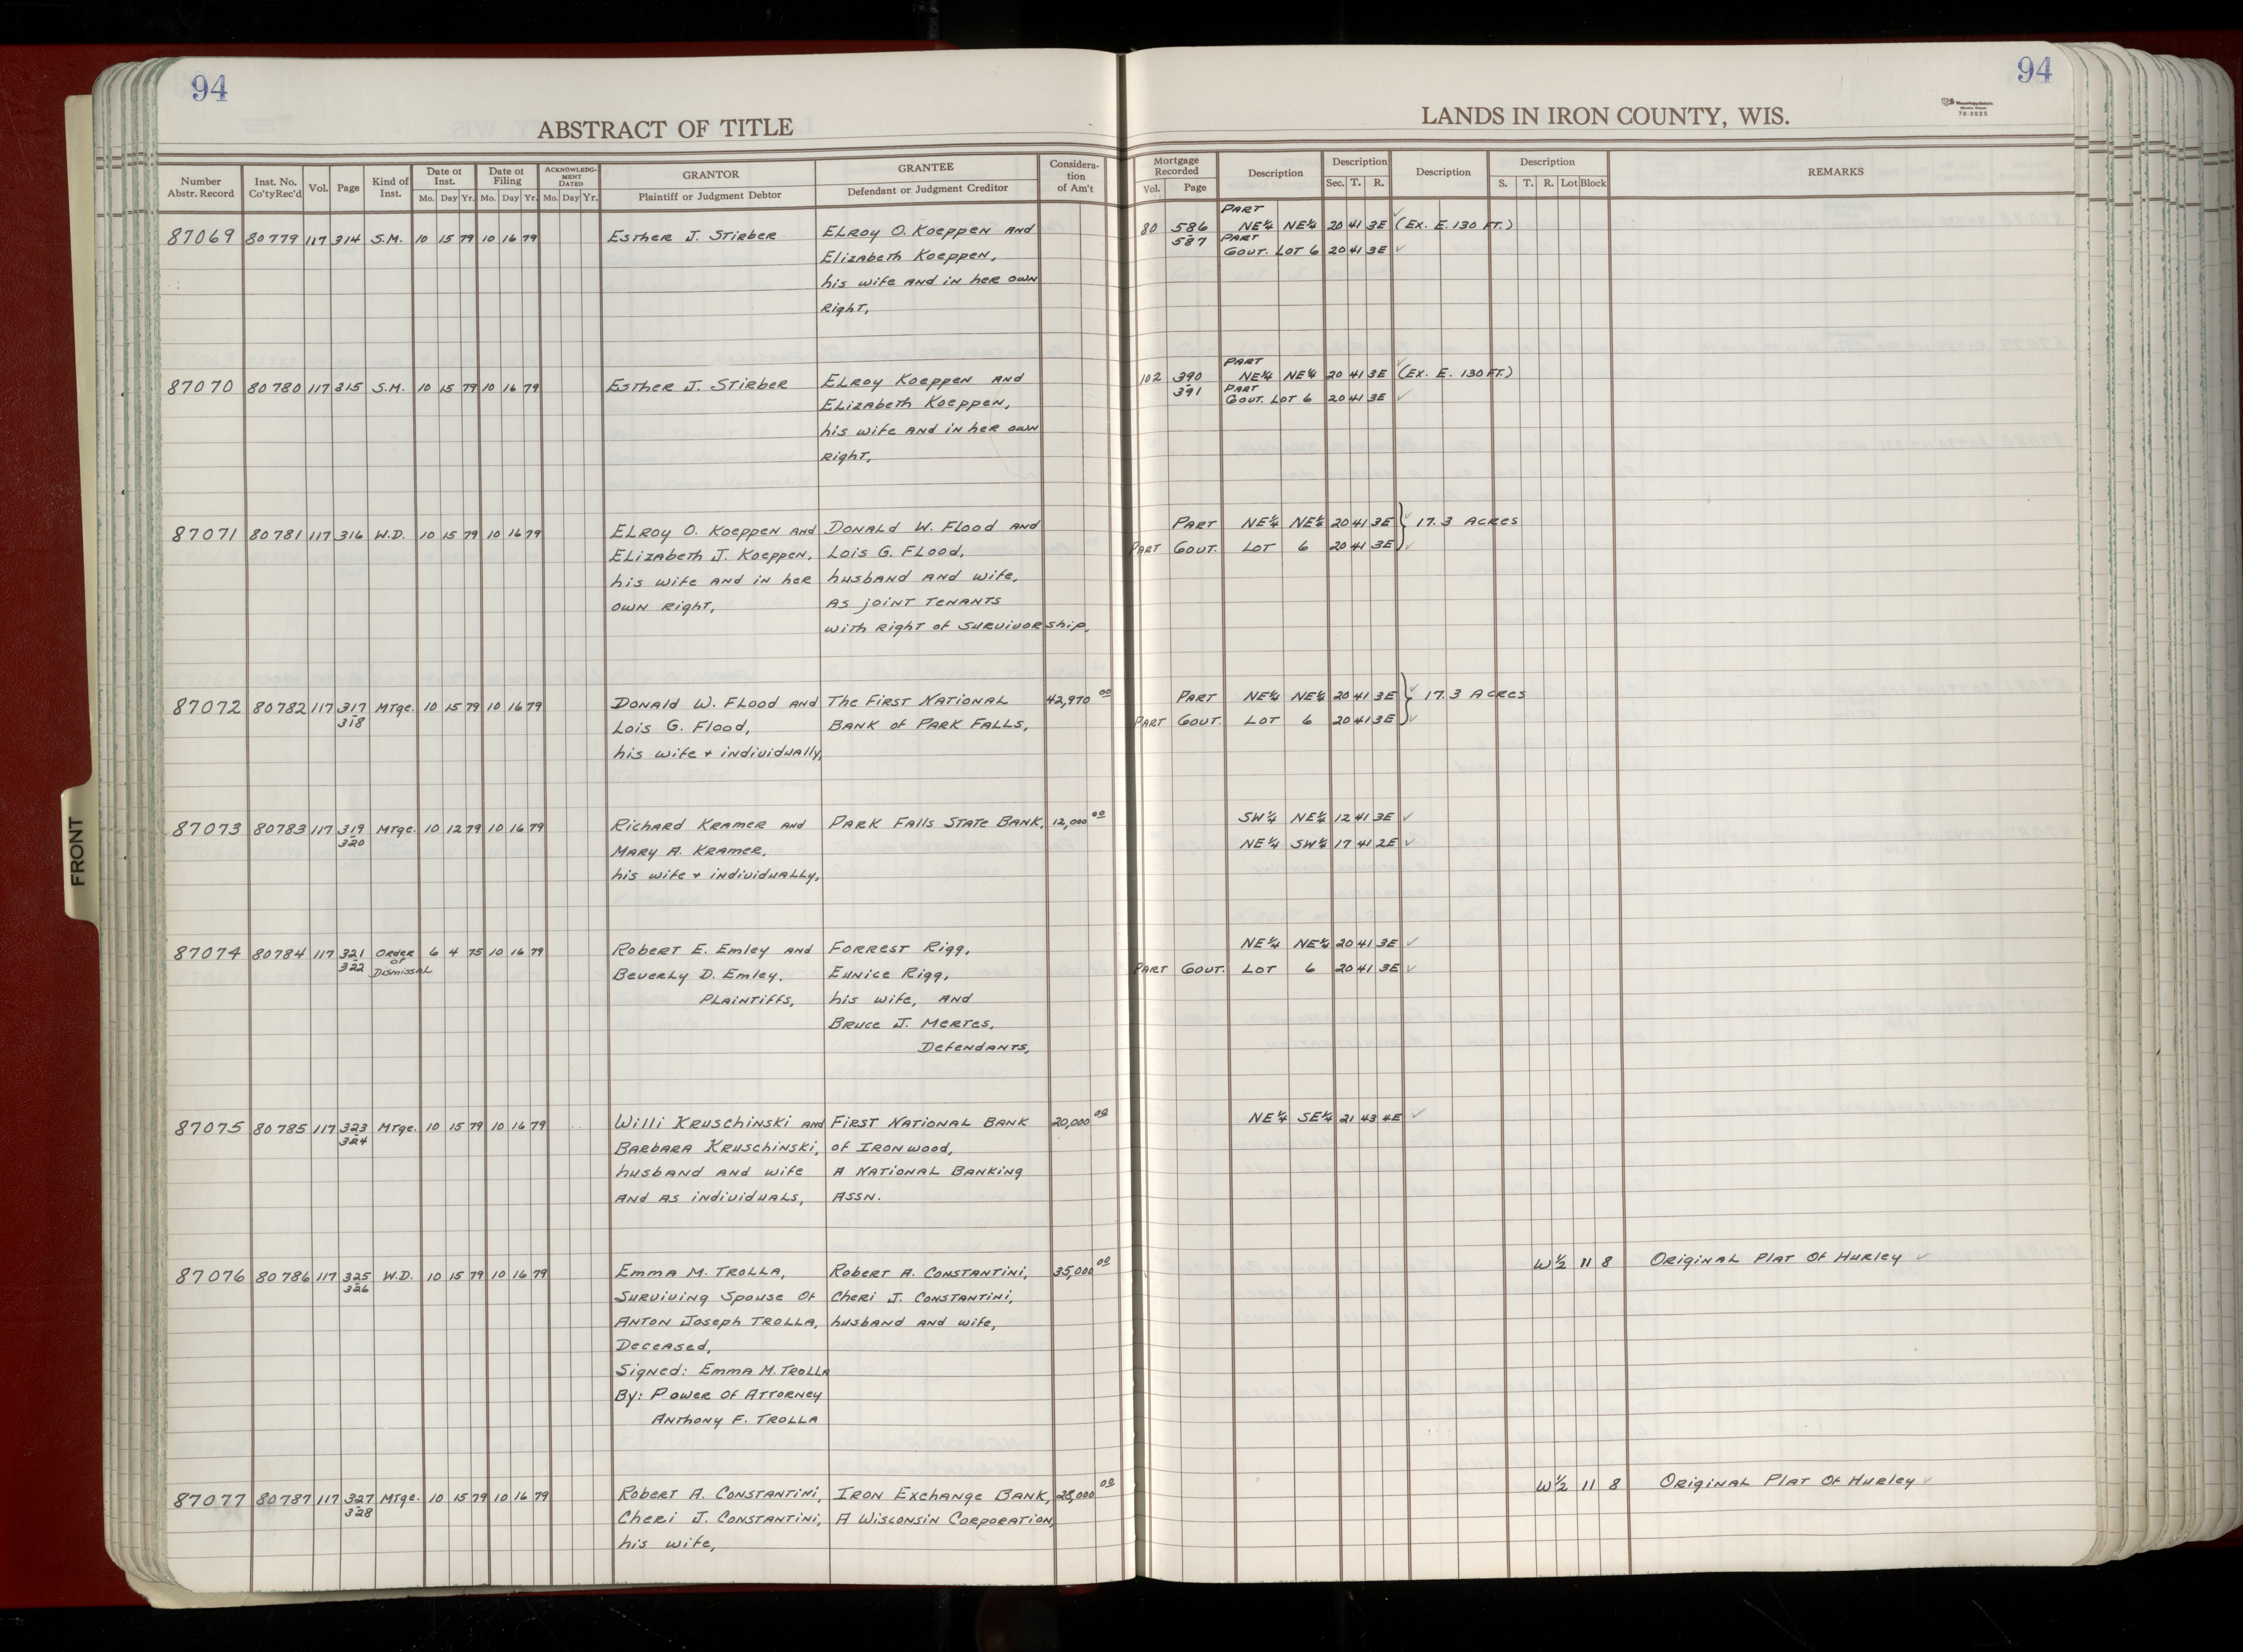 94
ABSTRACT OF TITLE
Number Abstr. Record | Inst. No. Co'tyRec'd | Vol. | Page | Kind of Inst. | Date of Inst. Mo. Day Yr. | Date of Filing Mo. Day Yr. | ACKNOWLEDGMENT DATED Mo. Day Yr. | GRANTOR Plaintiff or Judgment Debtor | GRANTEE Defendant or Judgment Creditor | Consideration of Am't
94
LANDS IN IRON COUNTY, WIS.
78-3525
Mortgage Recorded Vol. Page | Description | Description Sec. T. R. | Description | Description S. T. R. Lot Block | REMARKS
87069 80779 117 314 S.M. 10 15 79 10 16 79 Esther J. Stirber ELROY O. Koeppen AND 80 586 PART NE¼ NE¼ 20 41 3E ✓ (Ex. E. 130 FT.)
Elizabeth Koeppen, 587 PART GOVT. LOT 6 20 41 3E ✓
his wife AND in her own
Right,
87070 80780 117 315 S.M. 10 15 79 10 16 79 Esther J. Stirber ELROY Koeppen AND 102 390 PART NE¼ NE¼ 20 41 3E ✓ (Ex. E. 130 FT.)
ELizabeth Koeppen, 391 PART GOVT. LOT 6 20 41 3E ✓
his wife AND in her own
Right,
87071 80781 117 316 W.D. 10 15 79 10 16 79 ELROY O. Koeppen AND DONALD W. Flood AND PART NE¼ NE¼ 20 41 3E ✓ } 17.3 Acres
ELizabeth J. Koeppen, Lois G. FLOOD, PART GOVT. LOT 6 20 41 3E ✓
his wife AND in her husband AND wife,
own Right, AS joint TENANTS
with Right of Survivorship,
87072 80782 117 317 MTge. 10 15 79 10 16 79 DONALD W. FLOOD AND The First NATIONAL 42,970 00 PART NE¼ NE¼ 20 41 3E ✓ } 17.3 Acres
318 Lois G. Flood, BANK of PARK FALLS, PART GOVT. LOT 6 20 41 3E ✓
his wife + individually,
87073 80783 117 319 MTge. 10 12 79 10 16 79 Richard Kramer AND PARK Falls State Bank, 12,000 00 SW¼ NE¼ 12 41 3E ✓
320 MARY A. Kramer, NE¼ SW¼ 17 41 2E ✓
his wife + individually,
87074 80784 117 321 Order of Dismissal 6 4 75 10 16 79 Robert E. Emley AND FORREST Rigg, NE¼ NE¼ 20 41 3E ✓
322 Beverly D. Emley, EUNICE Rigg, PART GOVT. LOT 6 20 41 3E ✓
PLAINTIFFS, his wife, AND
Bruce J. Mertes,
Defendants,
87075 80785 117 323 MTge. 10 15 79 10 16 79 Willi Kruschinski AND FIRST NATIONAL BANK 20,000 00 NE¼ SE¼ 21 43 4E ✓
324 BARBARA Kruschinski, of IRONWOOD,
husband AND wife A NATIONAL BANKING
AND AS individuals, ASSN.
87076 80786 117 325 W.D. 10 15 79 10 16 79 Emma M. TROLLA, Robert A. CONSTANTINI, 35,000 00 W½ 11 8 Original Plat Of Hurley ✓
326 Surviving Spouse Of Cheri J. CONSTANTINI,
ANTON Joseph TROLLA, husband and wife,
Deceased,
Signed: Emma M. TROLLA
By: Power Of Attorney
Anthony F. TROLLA
87077 80787 117 327 MTge. 10 15 79 10 16 79 Robert A. CONSTANTINI, IRON Exchange BANK, 28,000 00 W½ 11 8 Original Plat Of Hurley ✓
328 Cheri J. CONSTANTINI, A Wisconsin Corporation,
his wife,
FRONT